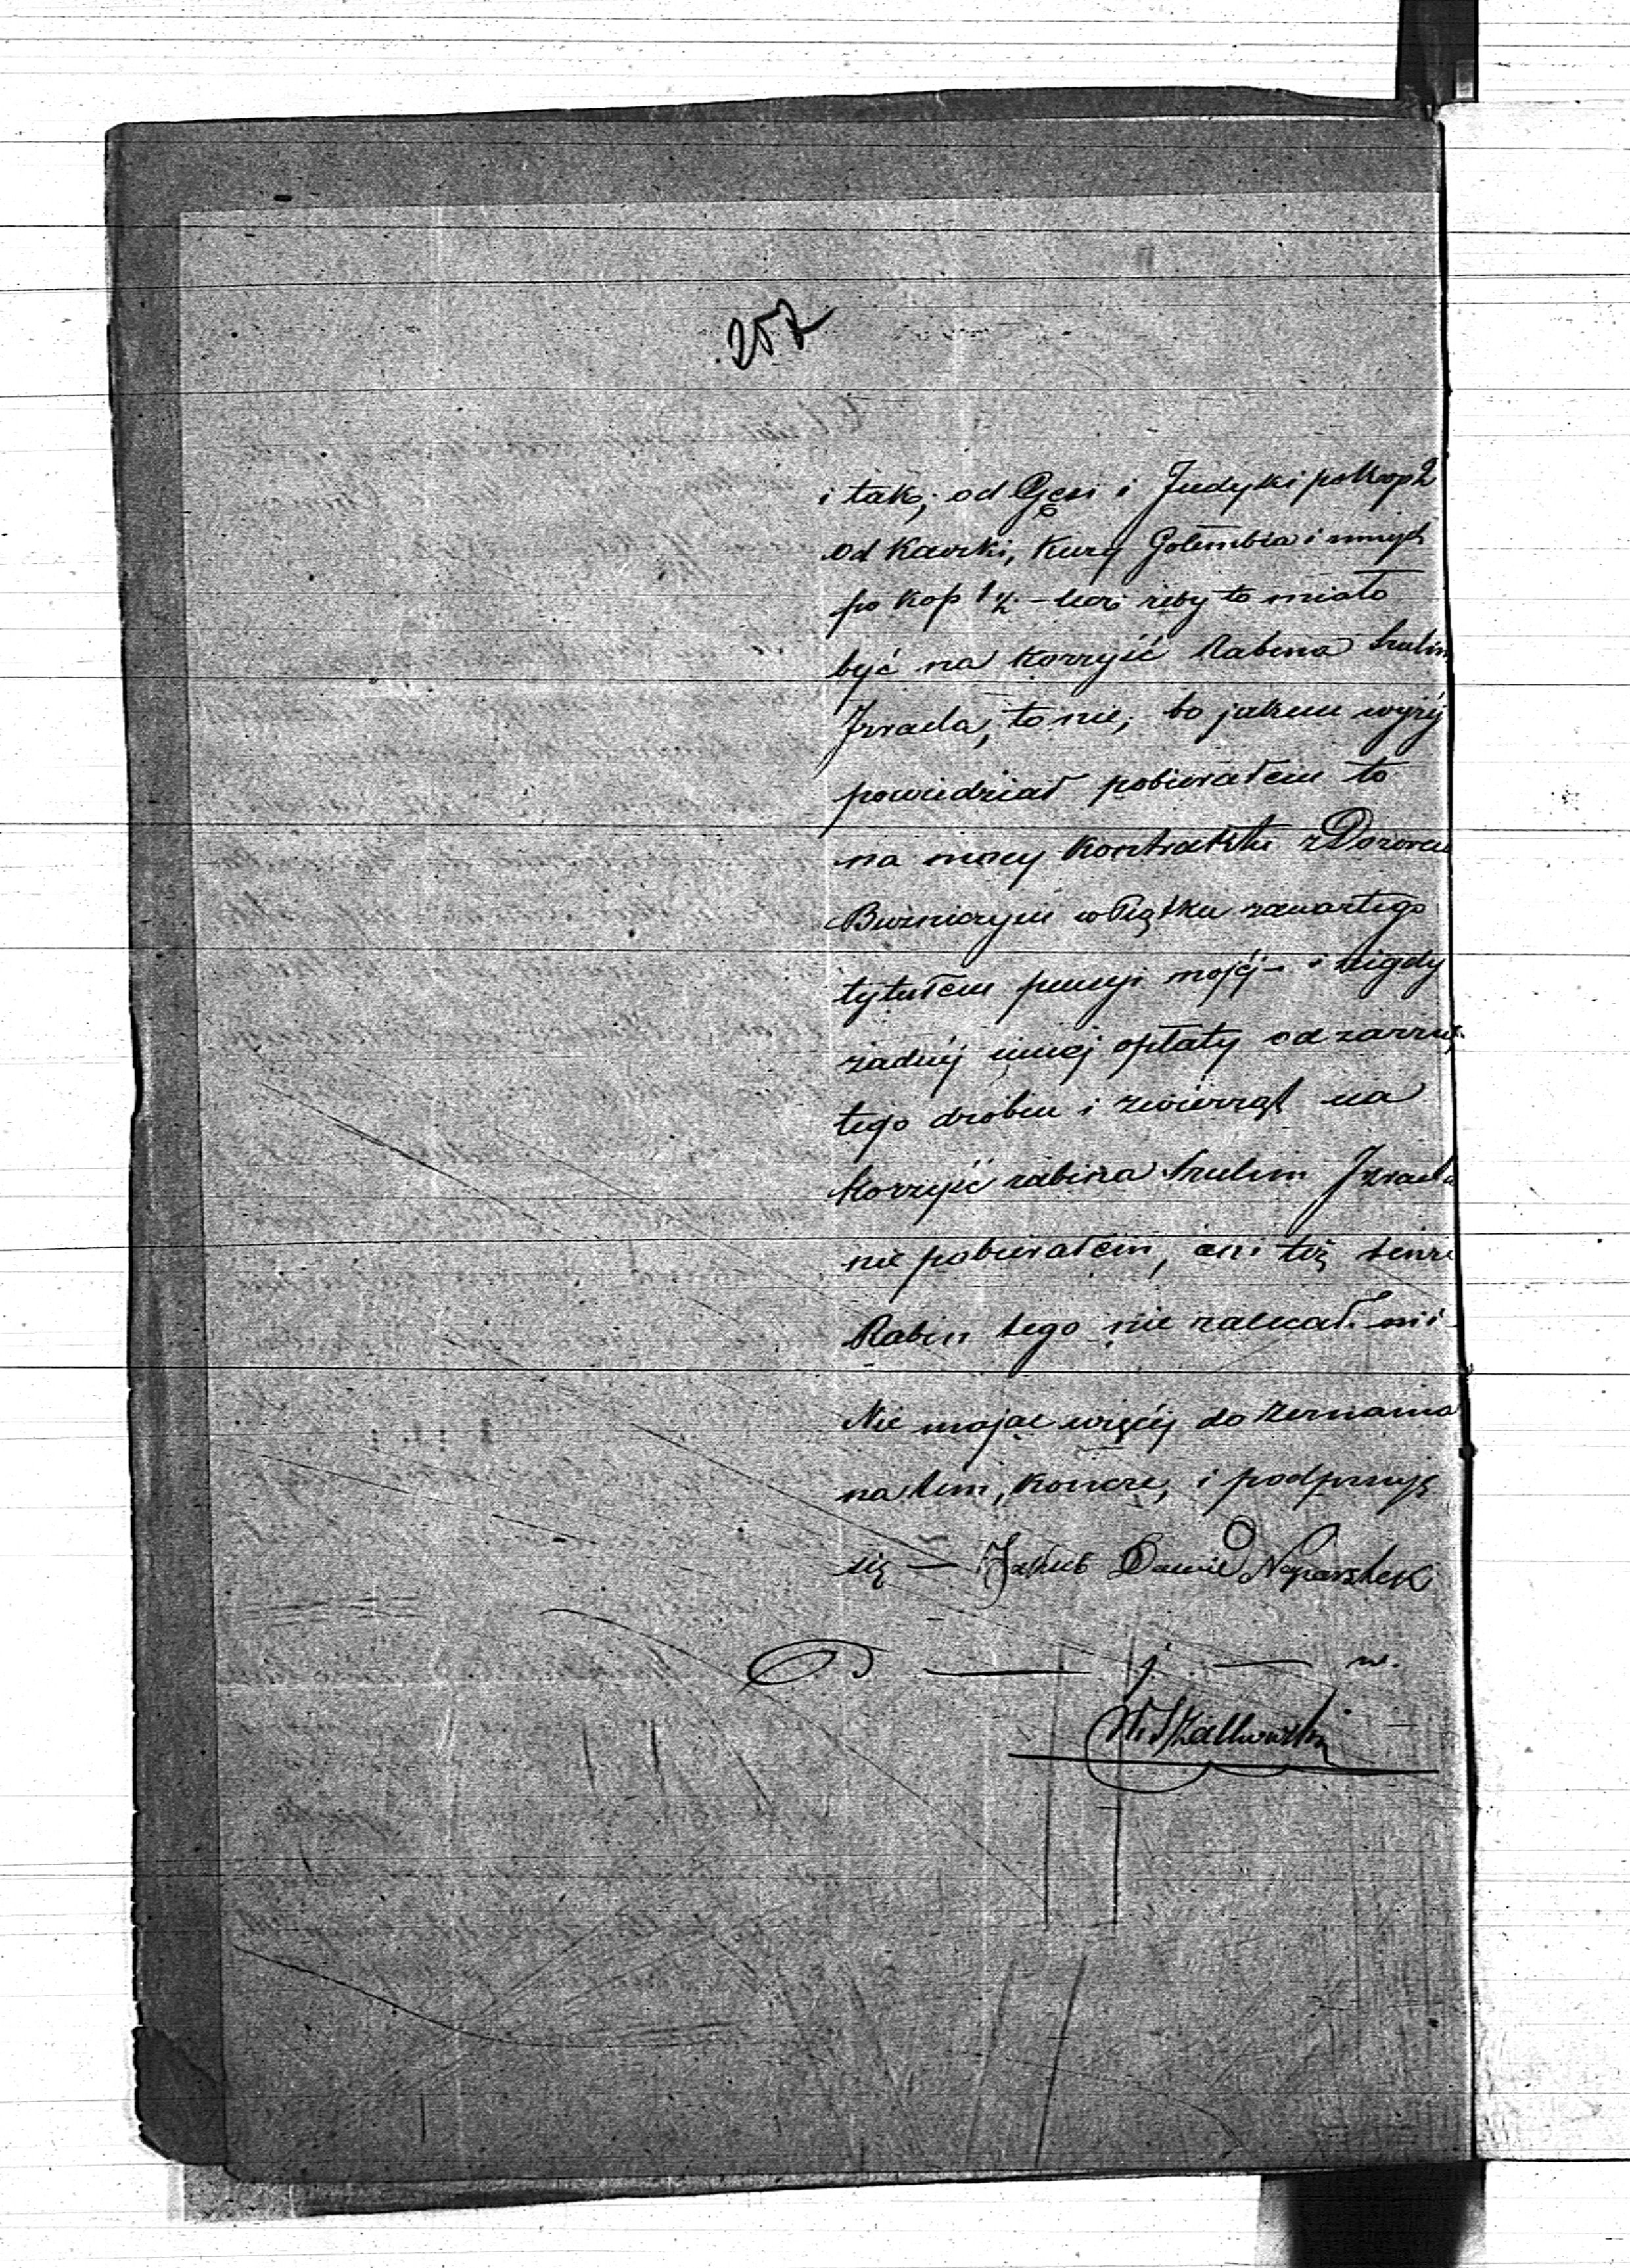 257
i tak; od Gęsi i Judyki po kop 2
od Kaczki, Kury Gołembia i innych
po kop 1½ – lecz żeby to miało
być na korzyść Rabina Szulim
Izraela, to nie, bo jakem wyżéj
powiedział pobierałem to
na mocy Kontraktu z Dozorem
Bużniczym w Piątku zawartego
tytułem pensyi mojéj – i nigdy
żadnéj innéj opłaty od zarznię-
tego drobiu i zwierząt na
korzyść rabina Szulim Izraela
nie pobierałem, ani też tenże
Rabin tego nie zalecał mi
Nie mając więcéj do zeznania
na tem, kończę, i podpisuję
się — Jakub Dawid Naparstek
j. w.